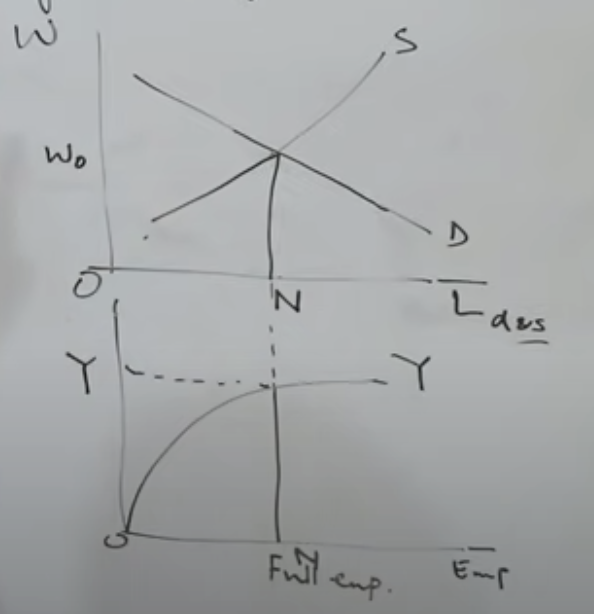 W
S
W₀
D
O
N
L d&s
Y
Y
O
N
Full emp.
Emp